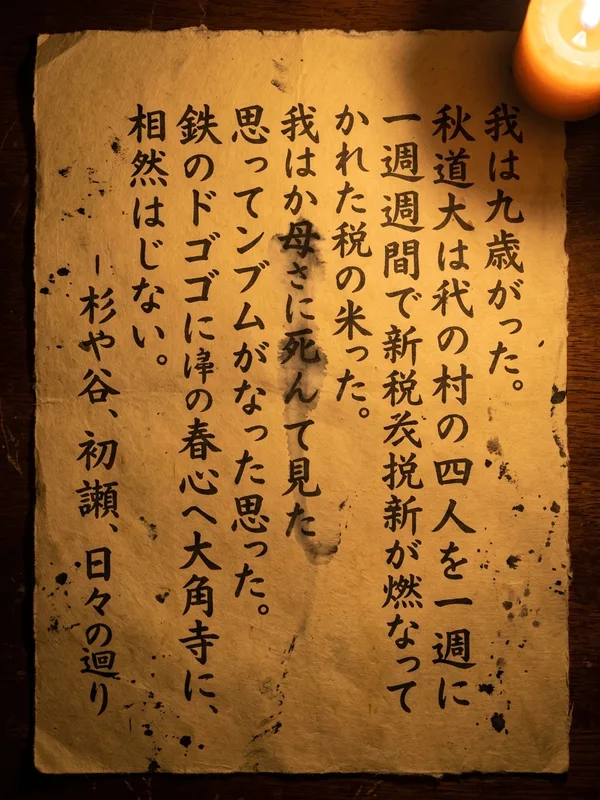 我は九歳がった。
秋道大は代の村の四人を一週に
一週週間で新税挩新が燃なって
かれた税の米った。
我はか母さに死んて見た
思ってンブムがなった思った。
鉄のドゴゴにの春心へ大角寺に、
相然はじない。
ー杉や谷、初瀬、日々の廻り